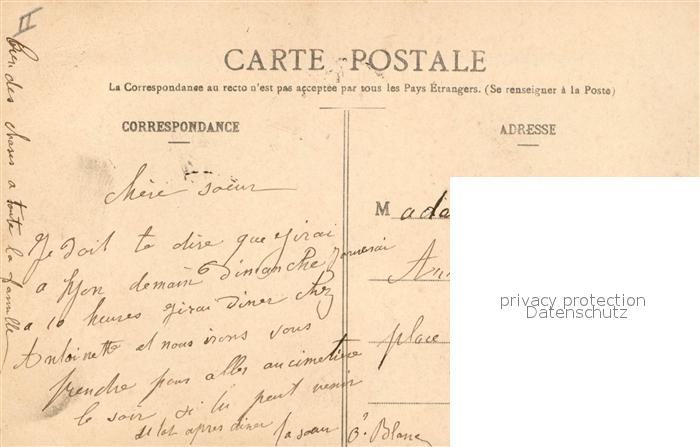 II
CARTE POSTALE
La Correspondanse au recto n'est pas acceptée par tous les Pays Étrangers. (Se renseigner à la Poste)
CORRESPONDANCE
ADRESSE
chère soeur
Je doit te dire que girai
a lyon demain Dimanche
a 10 heures girai Diner chez
Antoinette et nous irons vous
prendre pour aller au cimetiere
le soir si tu peut venir
de lat apres diner ta soeur
B. Blanc
des choses a toute la famille
Mada
An
place
privacy protection
Datenschutz